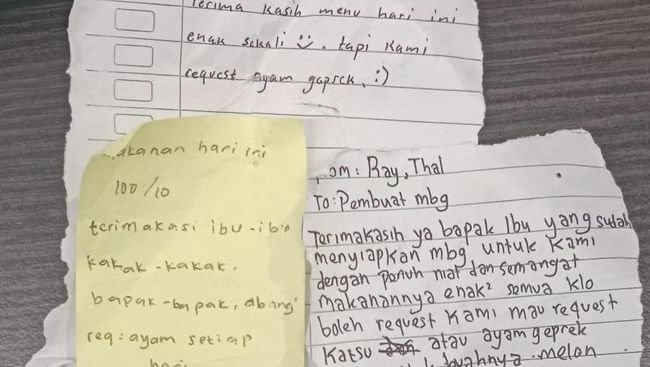 Terima kasih menu hari ini
enak sekali. tapi kami
request ayam geprek. :)
makanan hari ini
100/10
terimakasi ibu-ibu
kakak-kakak.
bapak-bapak, abang"
req: ayam setiap
hari
From: Ray, Thal
To: Pembuat mbg
Terimakasih ya bapak Ibu yang sudah
menyiapkan mbg, untuk kami
dengan penuh niat dan semangat
makanannya enak² semua klo
boleh request kami mau request
katsu atau ayam geprek
buahnya melon